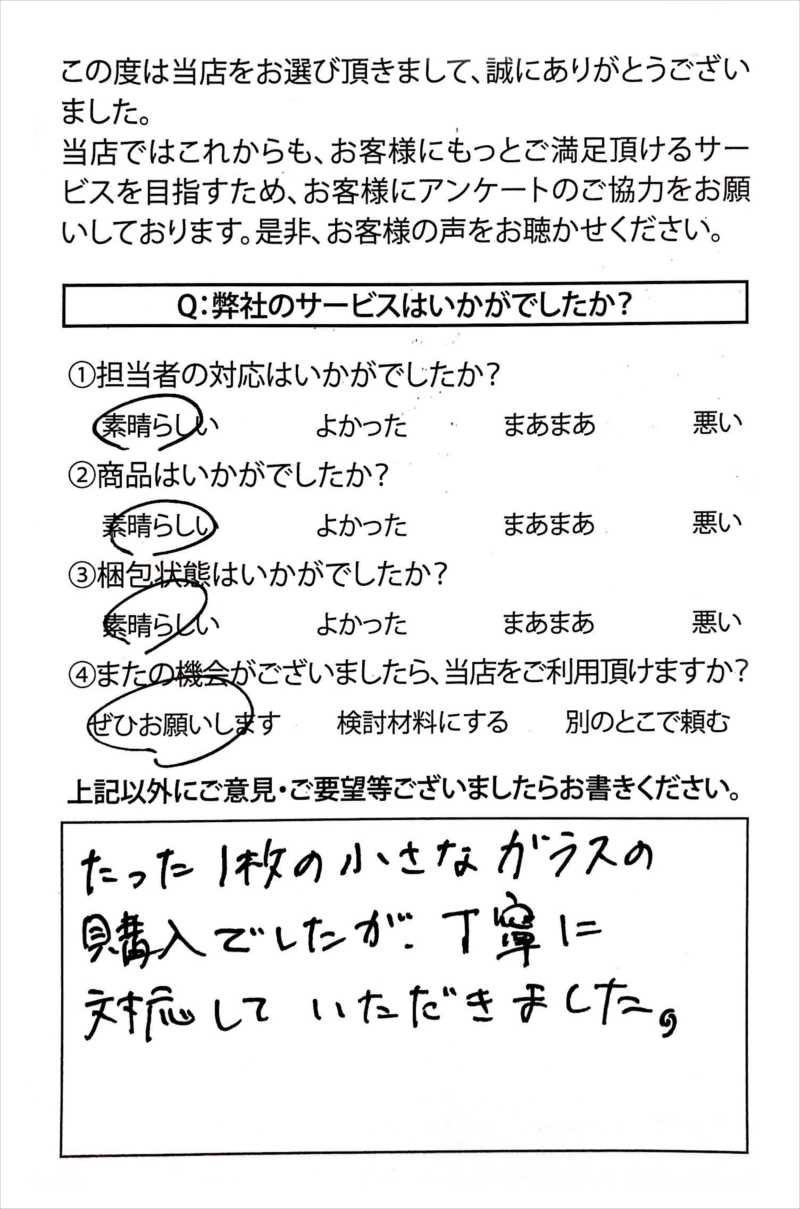 この度は当店をお選び頂きまして、誠にありがとうござい
ました。
当店ではこれからも、お客様にもっとご満足頂けるサー
ビスを目指すため、お客様にアンケートのご協力をお願
いしております。是非、お客様の声をお聴かせください。
Q：弊社のサービスはいかがでしたか？
①担当者の対応はいかがでしたか？
素晴らしい よかった まあまあ 悪い
②商品はいかがでしたか？
素晴らしい よかった まあまあ 悪い
③梱包状態はいかがでしたか？
素晴らしい よかった まあまあ 悪い
④またの機会がございましたら、当店をご利用頂けますか？
ぜひお願いします 検討材料にする 別のとこで頼む
上記以外にご意見・ご要望等ございましたらお書きください。
たった1枚の小さなガラスの
購入でしたが、丁寧に
対応して いただきました。